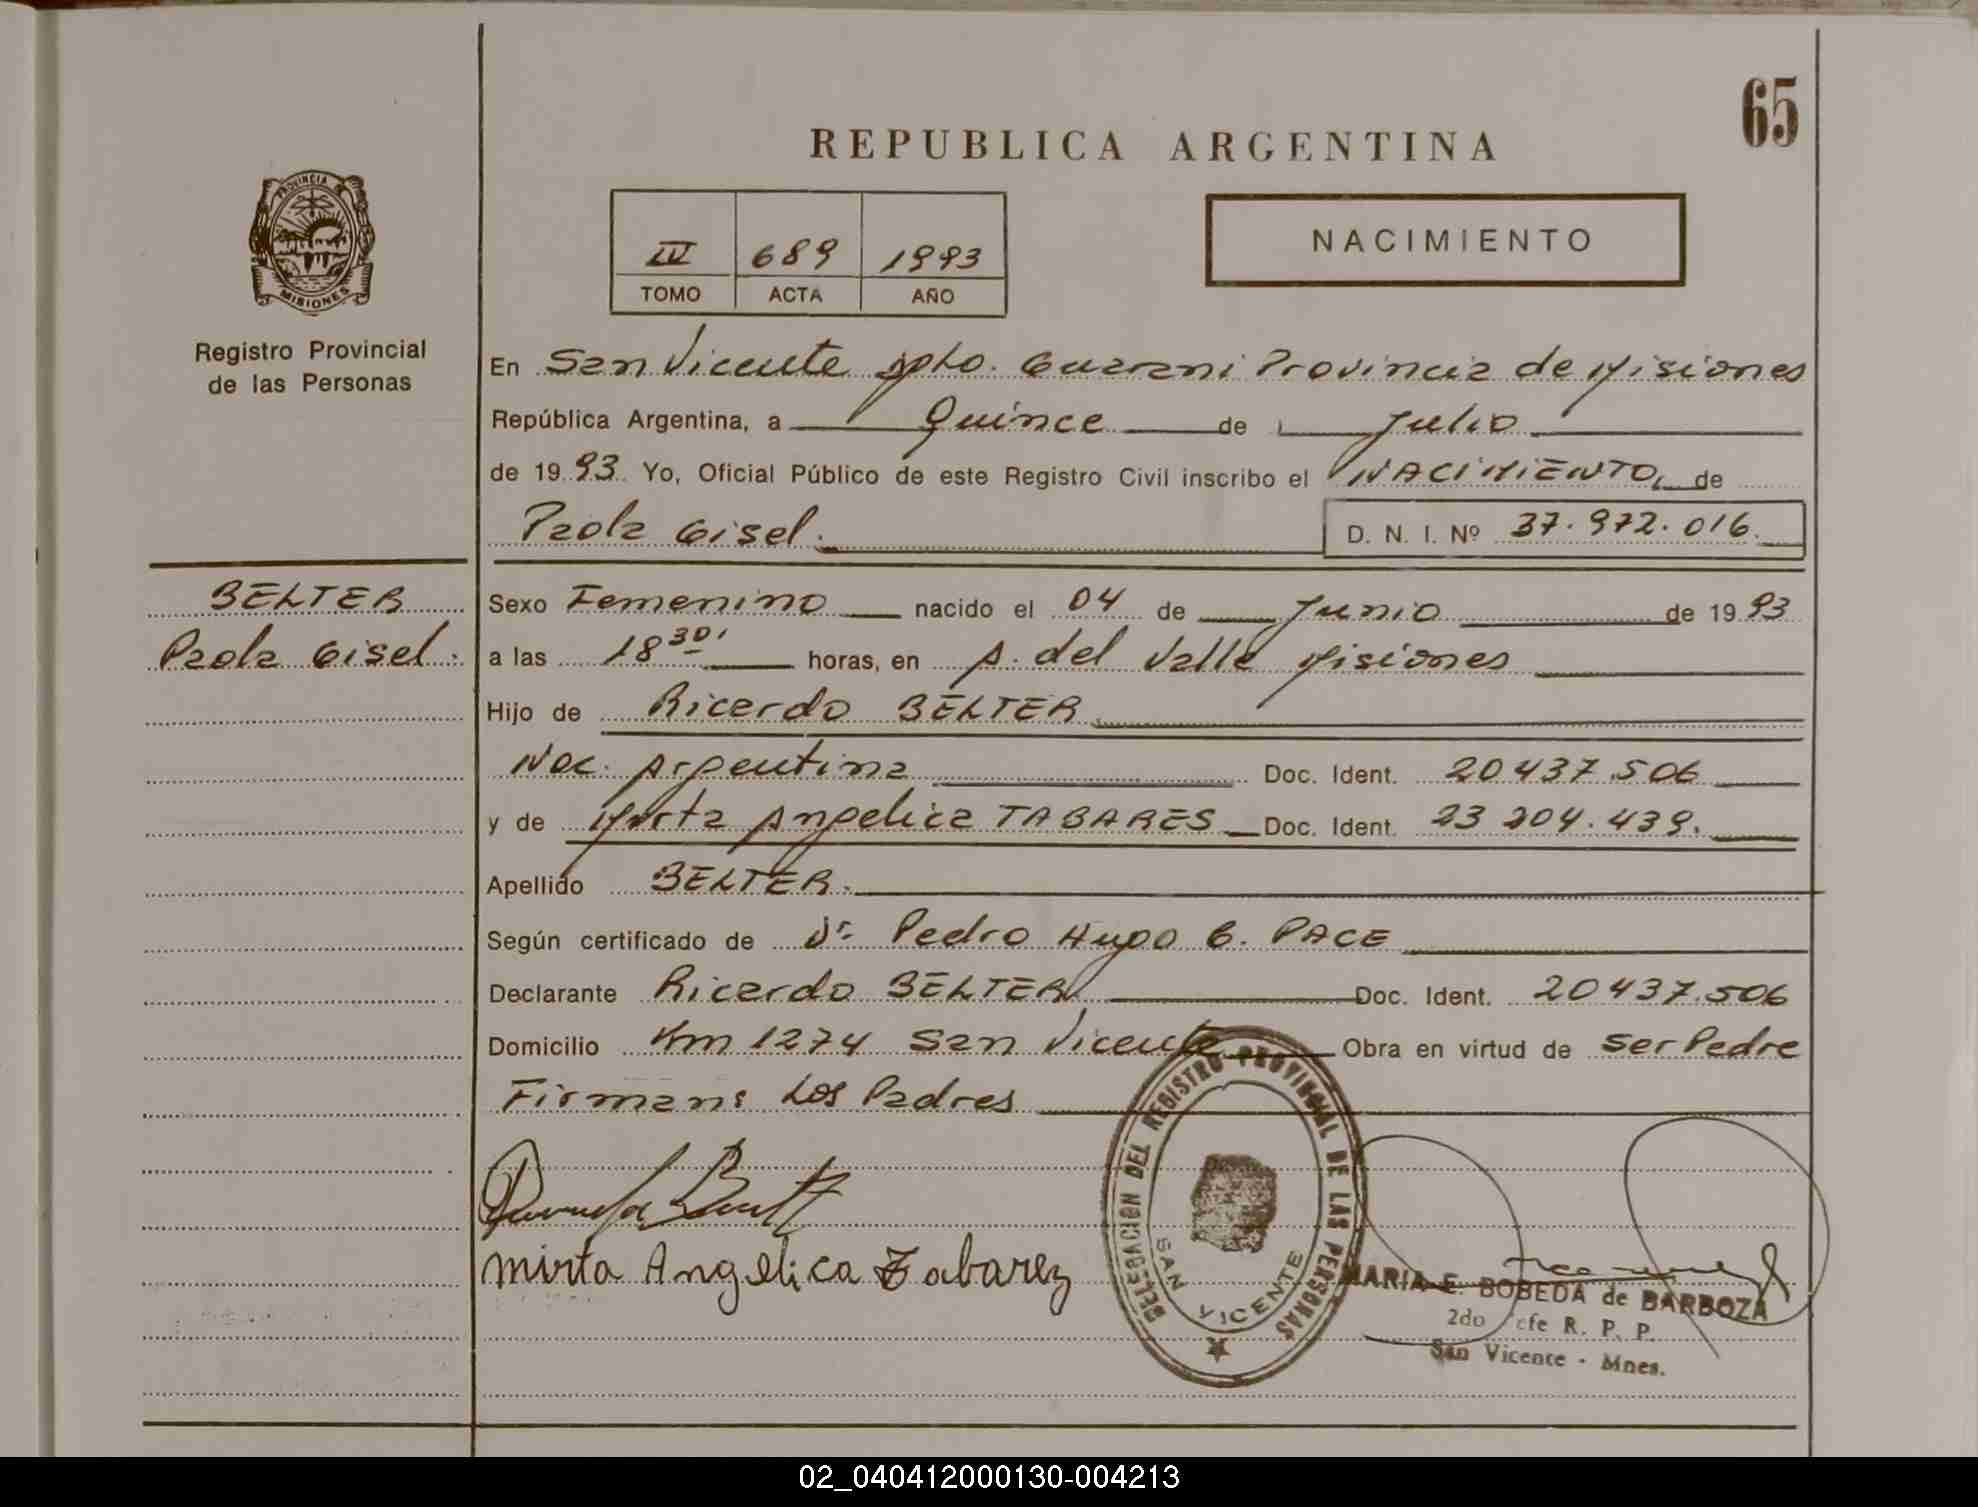 65
REPUBLICA ARGENTINA
PROVINCIA DE
MISIONES
Registro Provincial
de las Personas
IV 689 1993
TOMO ACTA AÑO
NACIMIENTO
En San Vicente Dpto. Guarani Provincia de Misiones
República Argentina, a Quince de Julio
de 1993 Yo, Oficial Público de este Registro Civil inscribo el NACIMIENTO, de
Paola Gisel. D. N. I. Nº 37.972.016.
BELTER
Paola Gisel.
Sexo Femenino nacido el 04 de Junio de 1993
a las 18 30' horas, en A. del Valle Misiones
Hijo de Ricardo BELTER
Nac. Argentina Doc. Ident. 20437.506
y de Mirta Angelica TABARES Doc. Ident. 23 204.439.
Apellido BELTER.
Según certificado de Dr. Pedro Hugo G. PACE
Declarante Ricardo BELTER Doc. Ident. 20437.506
Domicilio Km 1274 San Vicente Obra en virtud de ser Padre
Firman: Los Padres
mirta Angelica Tabarez
DELEGACION DEL REGISTRO PROVINCIAL DE LAS PERSONAS
SAN VICENTE
MARIA E. BOBEDA de BARBOZA
2do Jefe R. P. P.
San Vicente - Mnes.
02_040412000130-004213